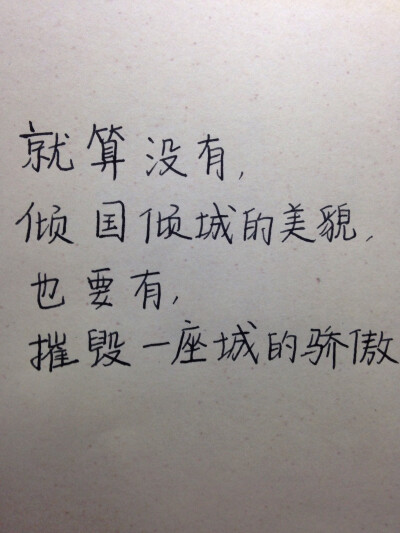 就算没有，
倾国倾城的美貌，
也要有，
摧毁一座城的骄傲